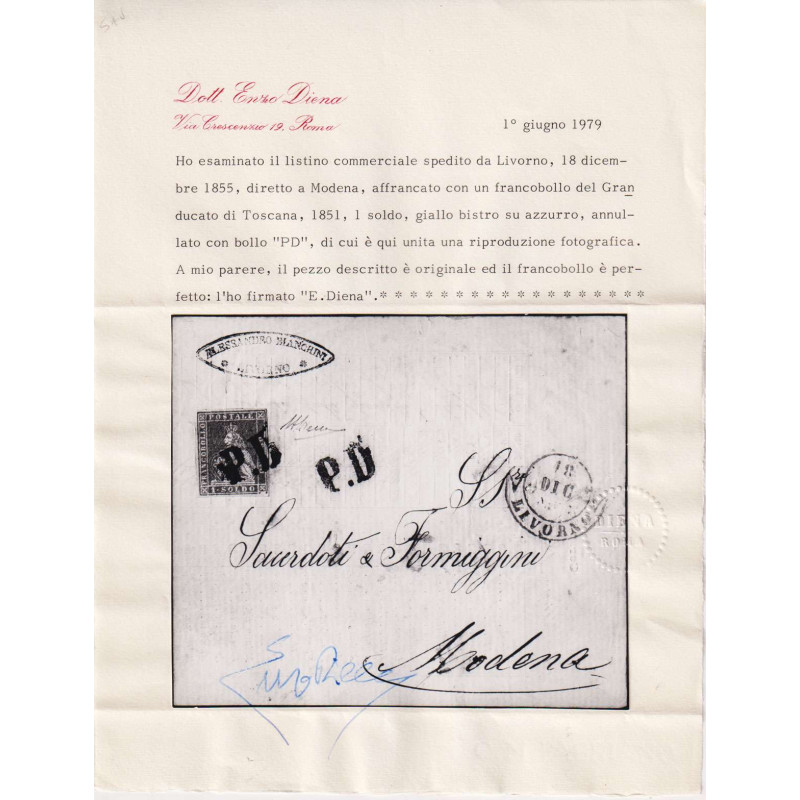 Dott. Enzo Diena
Via Crescenzio 19. Roma
1° giugno 1979
Ho esaminato il listino commerciale spedito da Livorno, 18 dicem-
bre 1855, diretto a Modena, affrancato con un francobollo del Gran
ducato di Toscana, 1851, 1 soldo, giallo bistro su azzurro, annul-
lato con bollo "PD", di cui è qui unita una riproduzione fotografica.
A mio parere, il pezzo descritto è originale ed il francobollo è per-
fetto: l'ho firmato "E.Diena".* * * * * * * * * * * * * * * * * *
ALESSANDRO BIANCHINI
LIVORNO
FRANCOBOLLO
POSTALE
1 SOLDO
P.D
P.D
18
DIC
LIVORNO
DIENA
ROMA
Sacerdoti & Formiggini
Modena